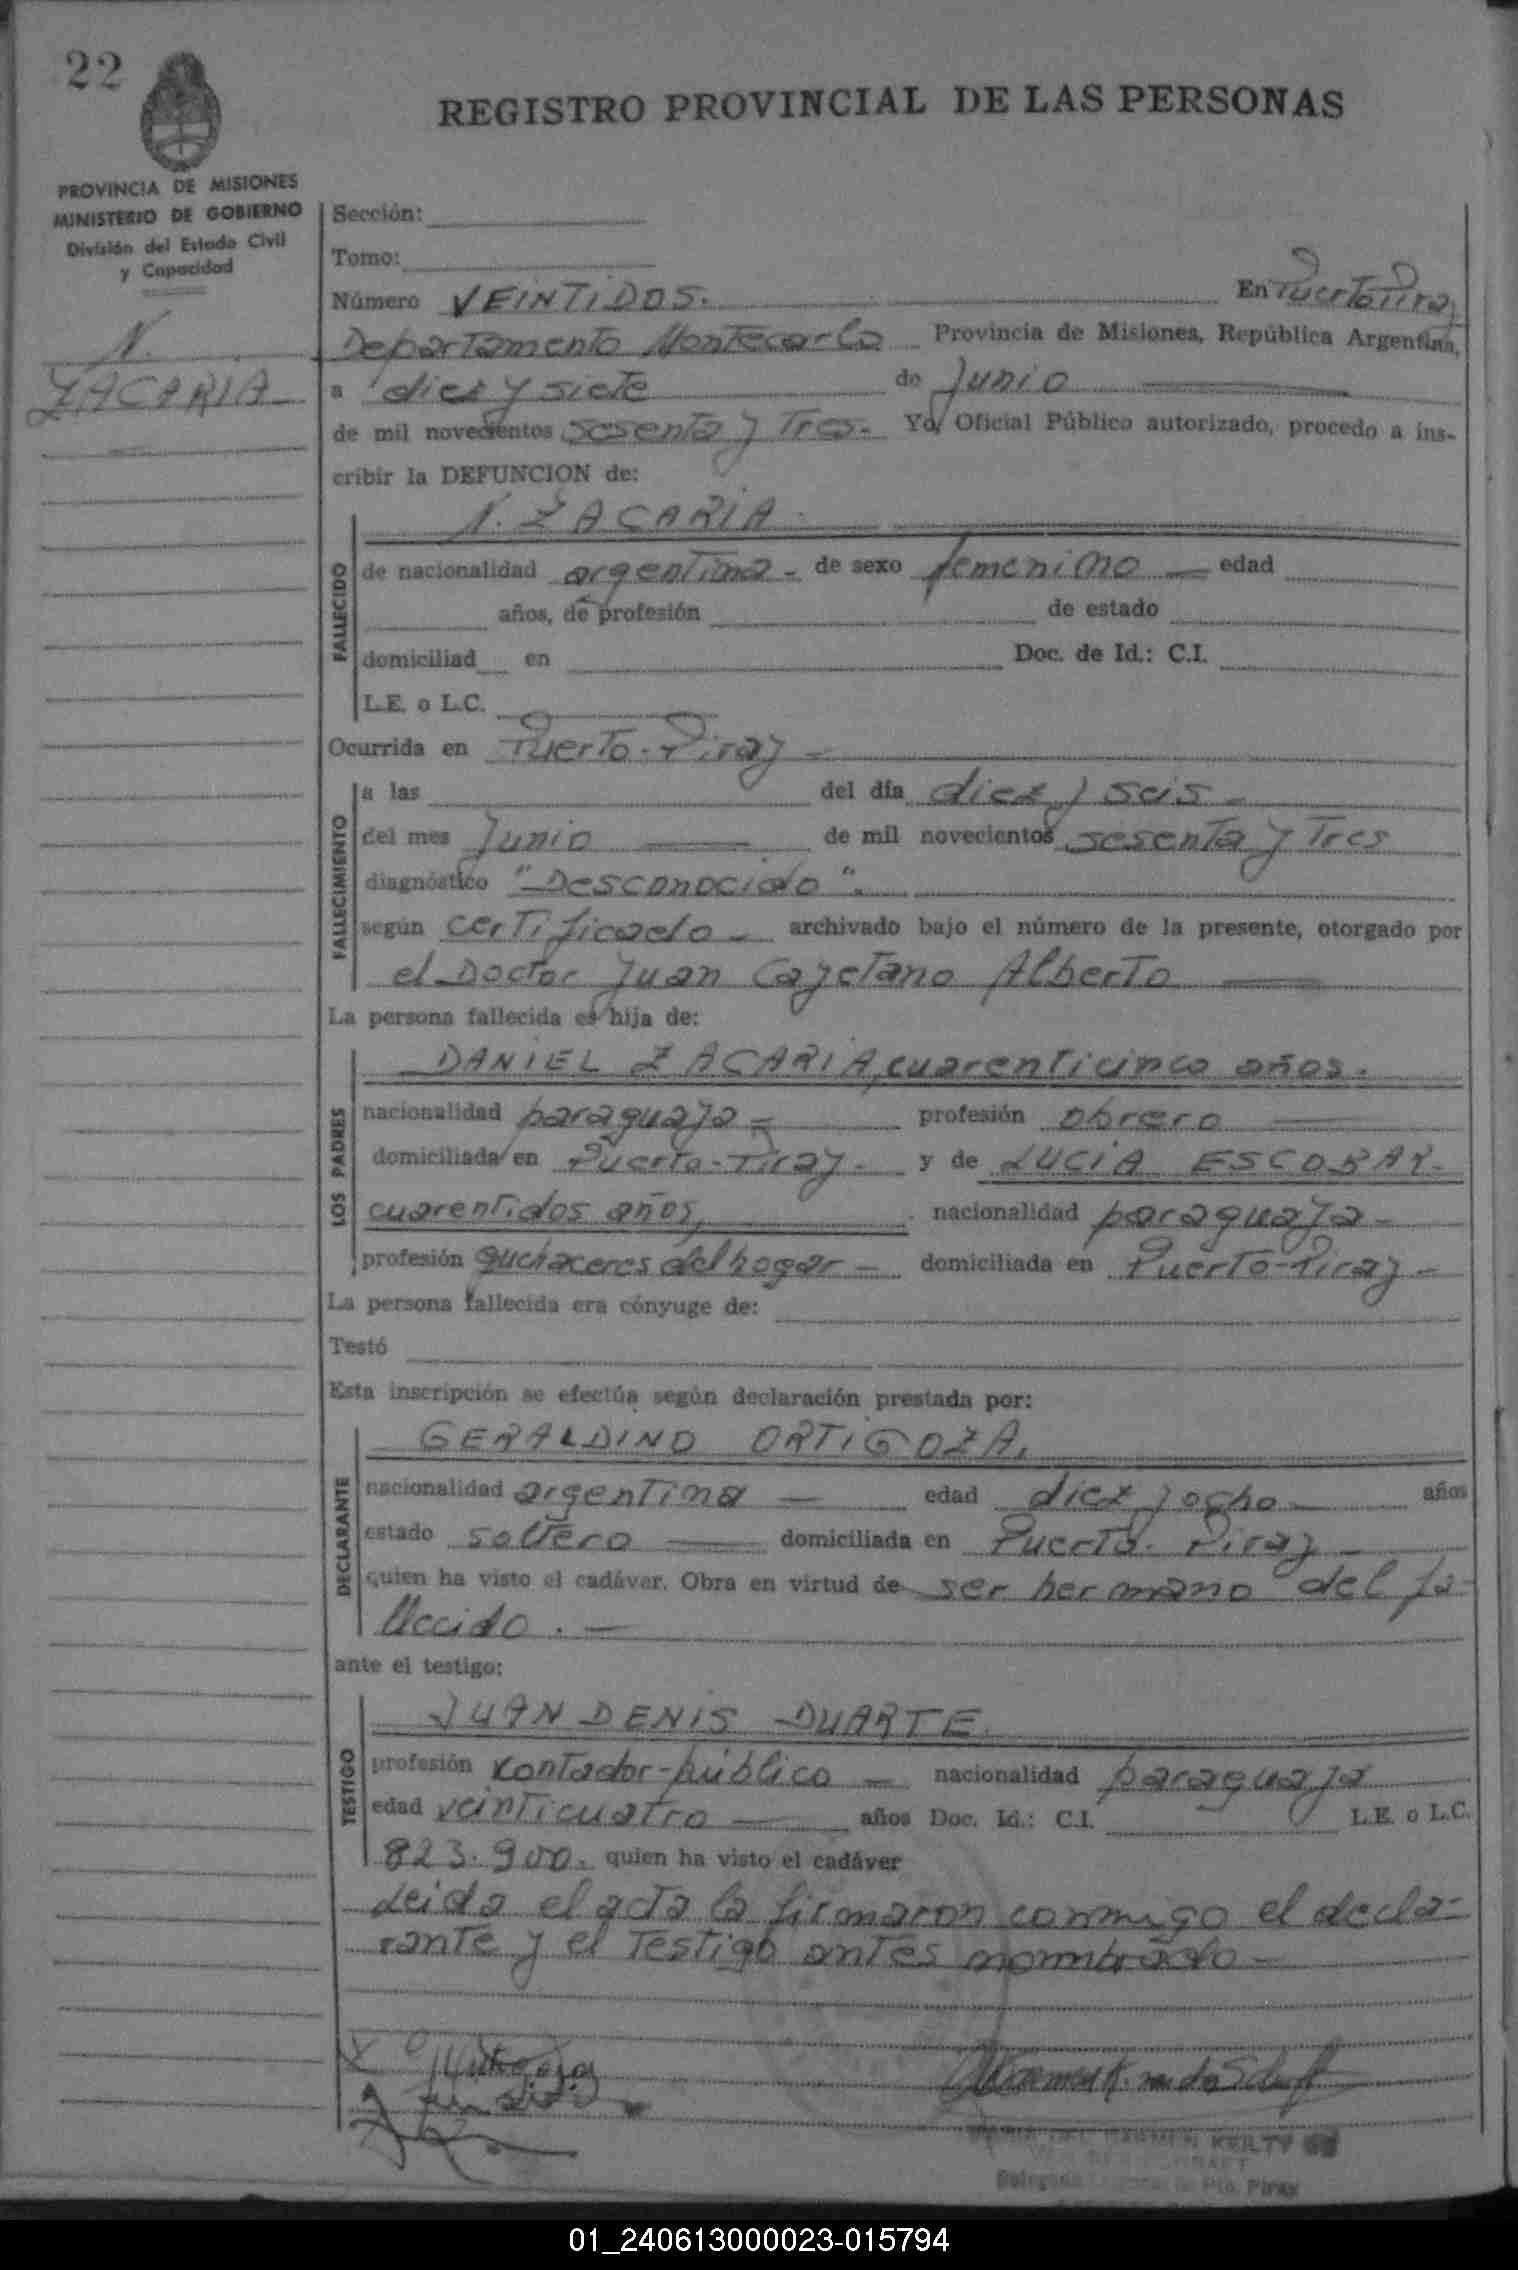 22
REGISTRO PROVINCIAL DE LAS PERSONAS
PROVINCIA DE MISIONES
MINISTERIO DE GOBIERNO
División del Estado Civil
y Capacidad
N.
ZACARIA
Sección:
Tomo:
Número VEINTIDOS. En Puerto Piray
Departamento Montecarlo Provincia de Misiones, República Argentina,
a diez y siete de Junio
de mil novecientos sesenta y Tres. Yo, Oficial Público autorizado, procedo a ins-
cribir la DEFUNCION de:
N. ZACARIA
FALLECIDO
de nacionalidad argentina - de sexo femenino — edad
años, de profesión de estado
domiciliad en Doc. de Id.: C.I.
L.E. o L.C.
Ocurrida en Puerto-Piray -
FALLECIMIENTO
a las del día diez y seis -
del mes Junio — de mil novecientos sesenta y Tres
diagnóstico "Desconocido".
según certificado - archivado bajo el número de la presente, otorgado por
el Doctor Juan Cayetano Alberto —
La persona fallecida es hija de:
LOS PADRES
DANIEL ZACARIA, cuarenticinco años.
nacionalidad paraguaya - profesión obrero —
domiciliada en Puerto-Piray- y de LUCIA ESCOBAR-
cuarentidos años, nacionalidad paraguaya -
profesión quehaceres del hogar - domiciliada en Puerto-Piray -
La persona fallecida era cónyuge de:
Testó
Esta inscripción se efectúa según declaración prestada por:
DECLARANTE
GERALDINO ORTIGOZA,
nacionalidad argentina — edad diez y ocho - años
estado soltero — domiciliada en Puerto-Piray -
quien ha visto el cadáver. Obra en virtud de ser hermano del fa-
llecido. -
ante el testigo:
TESTIGO
JUAN DENIS DUARTE
profesión contador-público - nacionalidad paraguaya
edad veinticuatro — años Doc. Id.: C.I. L.E. o L.C.
823.900. quien ha visto el cadáver
Leida el acta la firmaron conmigo el decla-
rante y el Testigo antes nombrado -
KEILTY
Pto. Piray
01_240613000023-015794